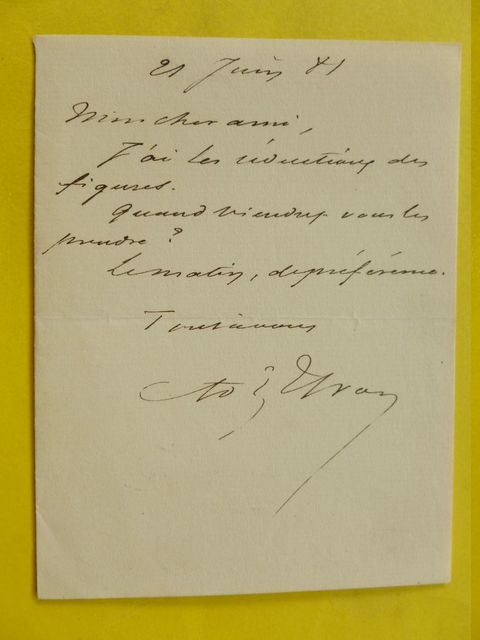 21 Juin 81
Mon cher ami,
J'ai les réductions des
figures.
Quand viendrez vous les
prendre ?
Le matin, de préférence.
Tout à vous
Ad. Yvon